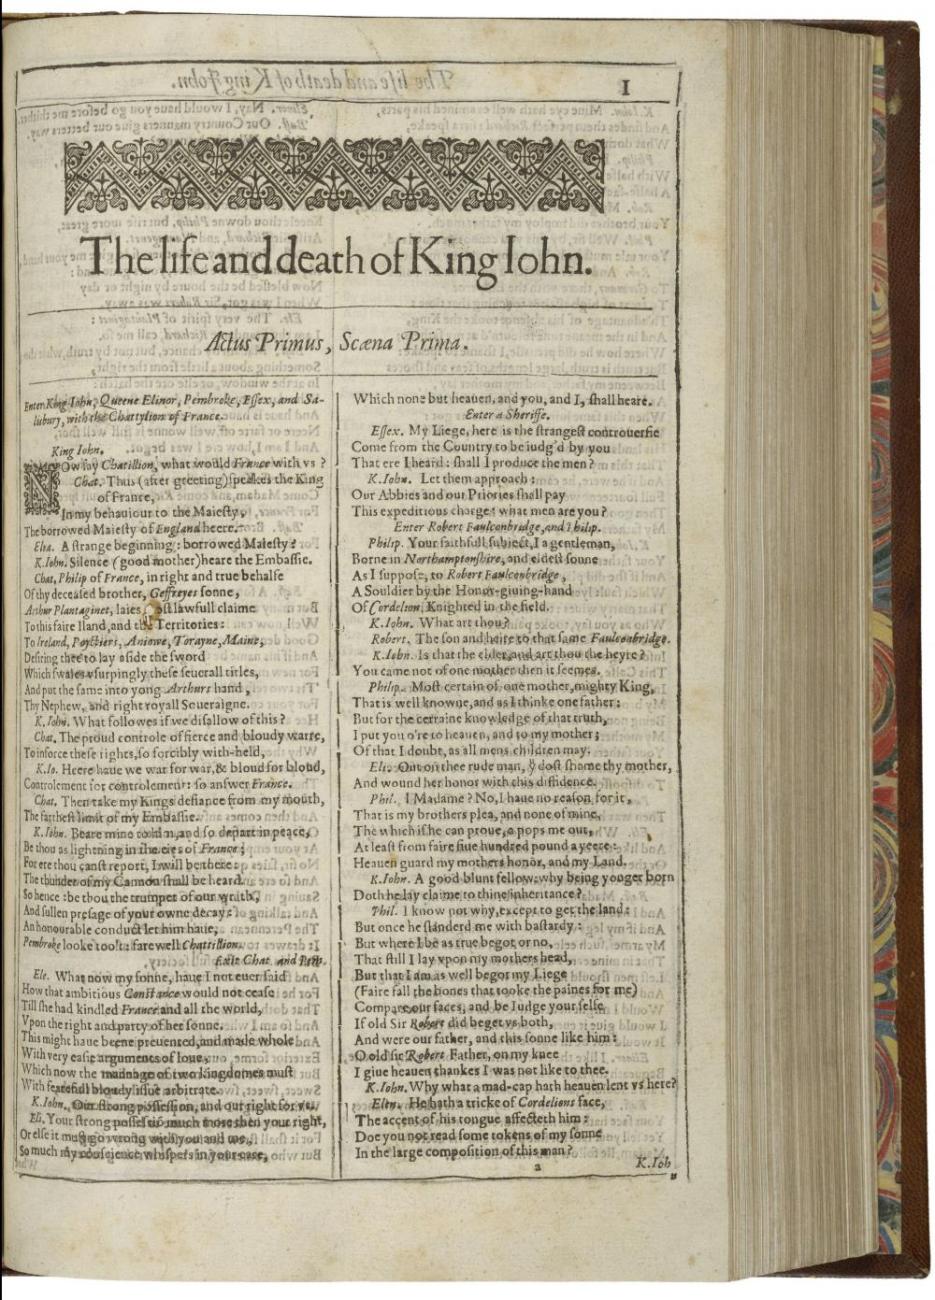 1
The life and death of King Iohn.
Actus Primus, Scæna Prima.
Enter King Iohn, Queene Elinor, Pembroke, Essex, and Sa-
lisbury, with the Chattylion of France.
King Iohn.
NOw say Chatillion, what would France with vs?
Chat. Thus (after greeting) speakes the King
of France,
In my behauiour to the Maiesty,
The borrowed Maiesty of England heere.
Elea. A strange beginning: borrowed Maiesty?
K.Iohn. Silence (good mother) heare the Embassie.
Chat. Philip of France, in right and true behalfe
Of thy deceased brother, Geffreyes sonne,
Arthur Plantaginet, laies most lawfull claime
To this faire Iland, and the Territories:
To Ireland, Poyctiers, Aniowe, Torayne, Maine,
Desiring thee to lay aside the sword
Which swaies vsurpingly these seuerall titles,
And put the same into yong Arthurs hand,
Thy Nephew, and right royall Soueraigne.
K.Iohn. What followes if we disallow of this?
Chat. The proud controle of fierce and bloudy warre,
To inforce these rights, so forcibly with-held,
K.Io. Heere haue we war for war, & bloud for bloud,
Controlement for controlement: so answer France.
Chat. Then take my Kings defiance from my mouth,
The farthest limit of my Embassie.
K.Iohn. Beare mine to him, and so depart in peace,
Be thou as lightning in the eies of France;
For ere thou canst report, I will be there:
The thunder of my Cannon shall be heard.
So hence: be thou the trumpet of our wrath,
And sullen presage of your owne decay:
An honourable conduct let him haue,
Pembroke looke too't: farewell Chattillion.
Exit Chat. and Pem.
Ele. What now my sonne, haue I not euer said
How that ambitious Constance would not cease
Till she had kindled France and all the world,
Vpon the right and party of her sonne.
This might haue beene preuented, and made whole
With very easie arguments of loue,
Which now the mannage of two kingdomes must
With fearefull bloudy issue arbitrate.
K.Iohn. Our strong possession, and our right for vs.
Eli. Your strong possessiō much more then your right,
Or else it must go wrong with you and me,
So much my conscience whispers in your eare,
Which none but heauen, and you, and I, shall heare.
Enter a Sheriffe.
Essex. My Liege, here is the strangest controuersie
Come from the Country to be iudg'd by you
That ere I heard: shall I produce the men?
K.Iohn. Let them approach:
Our Abbies and our Priories shall pay
This expeditious charge: what men are you?
Enter Robert Faulconbridge, and Philip.
Philip. Your faithfull subiect, I a gentleman,
Borne in Northamptonshire, and eldest sonne
As I suppose, to Robert Faulconbridge,
A Souldier by the Honor-giuing-hand
Of Cordelion, Knighted in the field.
K.Iohn. What art thou?
Robert. The son and heire to that same Faulconbridge.
K.Iohn. Is that the elder, and art thou the heyre?
You came not of one mother then it seemes.
Philip. Most certain of one mother, mighty King,
That is well knowne, and as I thinke one father:
But for the certaine knowledge of that truth,
I put you o're to heauen, and to my mother;
Of that I doubt, as all mens children may.
Eli. Out on thee rude man, ẏ dost shame thy mother,
And wound her honor with this diffidence.
Phil. I Madame? No, I haue no reason for it,
That is my brothers plea, and none of mine,
The which if he can proue, a pops me out,
At least from faire fiue hundred pound a yeere:
Heauen guard my mothers honor, and my Land.
K.Iohn. A good blunt fellow: why being yonger born
Doth he lay claime to thine inheritance?
Phil. I know not why, except to get the land:
But once he slanderd me with bastardy:
But where I be as true begot or no,
That still I lay vpon my mothers head,
But that I am as well begot my Liege
(Faire fall the bones that tooke the paines for me)
Compare our faces, and be Iudge your selfe
If old Sir Robert did beget vs both,
And were our father, and this sonne like him:
O old sir Robert Father, on my knee
I giue heauen thankes I was not like to thee.
K.Iohn. Why what a mad-cap hath heauen lent vs here?
Elen. He hath a tricke of Cordelions face,
The accent of his tongue affecteth him:
Doe you not read some tokens of my sonne
In the large composition of this man?
a
K.Ioh